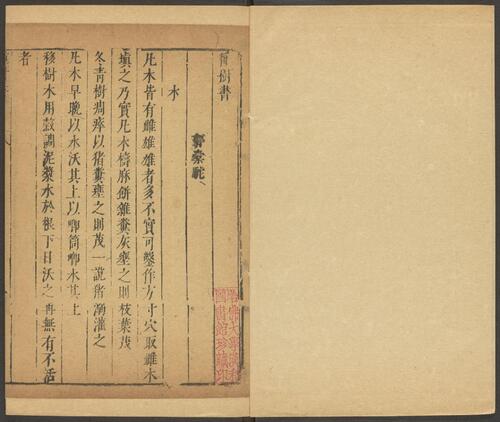 種樹書
郭橐駝
木
凡木皆有雌雄雄者多不實可鑿作方寸穴取雌木
填之乃實凡木檮麻餅雜糞灰壅之則枝葉茂
冬青樹凋瘁以猪糞壅之則茂一說猪溺灌之
凡木早晚以水沃其上以唧筒唧水其上
移樹木用穀調泥漿水於根下日沃之再無有不活
者